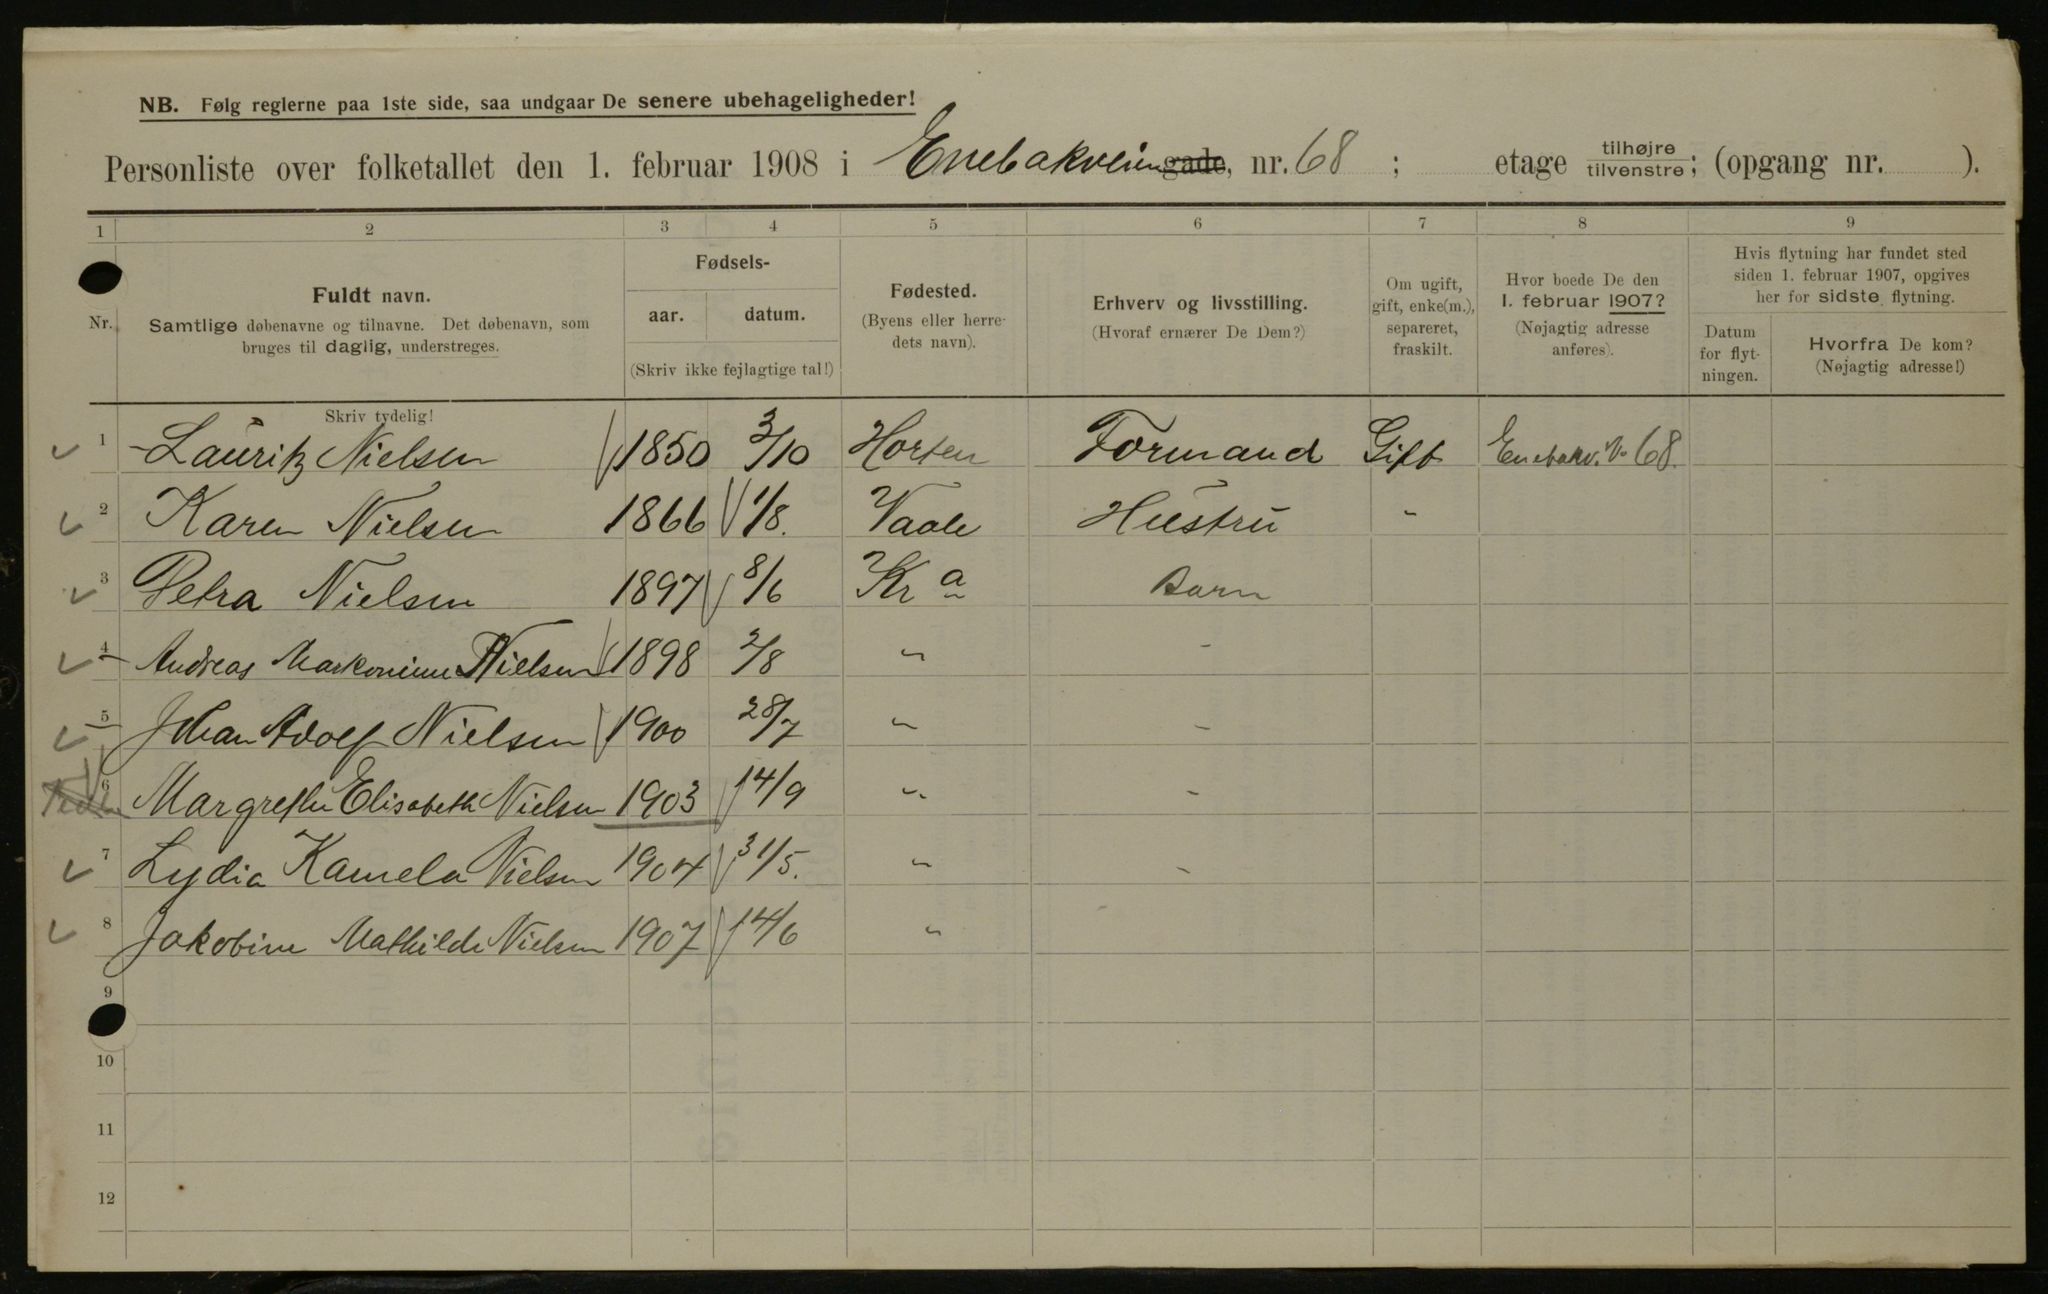 NB. Følg reglerne paa 1ste side, saa undgaar De senere ubehageligheder!
Personliste over folketallet den 1. februar 1908 i Enebakveien gade, nr. 68 ; etage tilhøjre tilvenstre; (opgang nr. ).
1 2 3 4 5 6 7 8 9
Nr.
Fuldt navn.
Samtlige døbenavne og tilnavne. Det døbenavn, som
bruges til daglig, understreges.
Skriv tydelig!
Fødsels-
aar. datum.
(Skriv ikke fejlagtige tal!)
Fødested.
(Byens eller herre-
dets navn).
Erhverv og livsstilling.
(Hvoraf ernærer De Dem?)
Om ugift,
gift, enke(m.),
separeret,
fraskilt.
Hvor boede De den
1. februar 1907?
(Nøjagtig adresse
anføres).
Hvis flytning har fundet sted
siden 1. februar 1907, opgives
her for sidste flytning.
Datum
for flyt-
ningen.
Hvorfra De kom?
(Nøjagtig adresse!)
1 Lauritz Nielsen 1850 3/10 Horten Formand Gift Enebakv. 68.
2 Karen Nielsen 1866 1/8. Vaale Hustru "
3 Petra Nielsen 1897 8/6 Kra Barn
4 Andreas Nielsen 1898 2/8 " "
5 Johan Adolf Nielsen 1900 28/7 " "
6 Margrethe Elisabeth Nielsen 1903 14/9 " "
7 Lydia Kamela Nielsen 1904 31/5. " "
8 Jakobine Mathilde Nielsen 1907 14/6 "
9
10
11
12